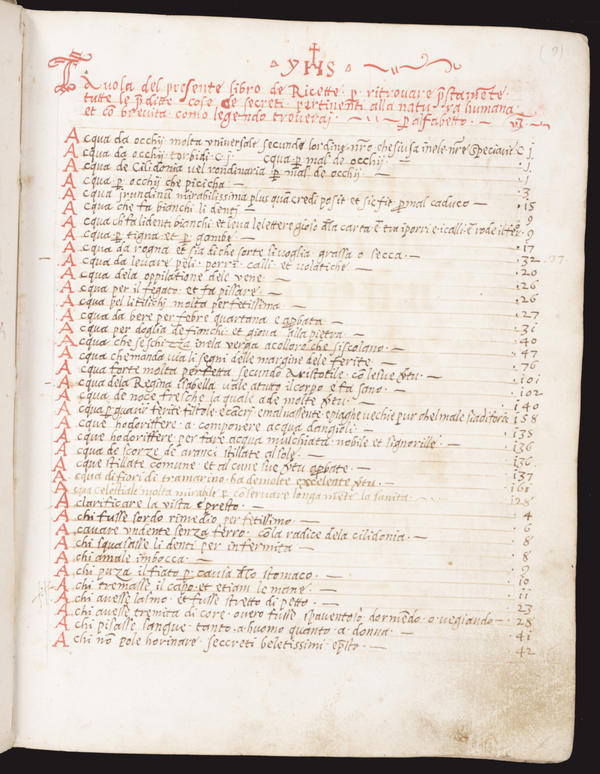 (9)
yHS
Tavola del presente libro de Ricette p ritrovare pstamēte
tutte le pditte cose, de secreti pertinenti alla natura humana
et cō brevita como legendo troverai p alfabetto
Acqua da occhij molta universale secundo lordine nrō che si usa in ele nrē speciarie C j
Acqua da occhij torbidi C j. Cqua p mal de occhij j
Acqua de Cilidonia vel rondinaria p mal de occhij j
Acqua p occhij che picicha 3
Acqua jrundinū mirabilissima plus quā credi posit et sic fit p mal caduco 15
Acqua che fa bianchi li denti 9
Acqua ch fa li denti bianchi et leva le lettere dla carta 9
Acqua p tigna et p gambe 9
Acqua da rogna et sia di che sorte si voglia grassa o secca 17
Acqua da levare peli porri calli et volatiche 32
Acqua dela oppilatione dele vene 20
Acqua per il fegato et fa pissare 26
Acqua pel litisichi molta perfetissima 26
Acqua da bere per febre quartana e apbata 27
Acqua per doglia de fianchi et giova alla pietra 31
Acqua che se schizza inela verga a coloro che si scolano 40
Acqua che manda via li segni delle margine dele ferite 47
Acqua forte molta perfetta secundo Aristotile cō le sue vtu 76
Acqua dela Regina isabella vale a tuto il corpo e fa sano 101
Acqua de noce fresche la quale a de molte vtu 102
Acqua p guarir ferite fistole e cācri 140
Acque hodoriffere a componere acqua dangioli 158
Acque hodoriffere per fare acqua mulchiata nobile et signorille 135
Acqua de scorze de aranci stillate al sole 136
Acque stillate comune et alcune sue vtu apbate 136
Acqua di fiori di tramarino ha de molte excelente vtu 137
Acqua celestiale molta mirabile e conservare longamēte la sanita 128
A clarificare la vista e presto 161
A chi fusse sordo rimedio perfetissimo 4
A cavare un dente senza ferro cola radice dela cilidonia 6
A chi squalasse li denti per infermita 8
A chi amale in bocca 8
A chi puza il fiato p causa dlo stomaco 9
A chi tremasse il capo et etiam le mane 10
A chi avesse lasmo et fusse stretto di petto 11
A chi avesse tremita di core overo fusse spaventoso dormēdo o vegiando 23
A chi pisasse sangue tanto a huomo quanto a donna 28
A chi nō pole horinare seccreti beletissimi 41
42